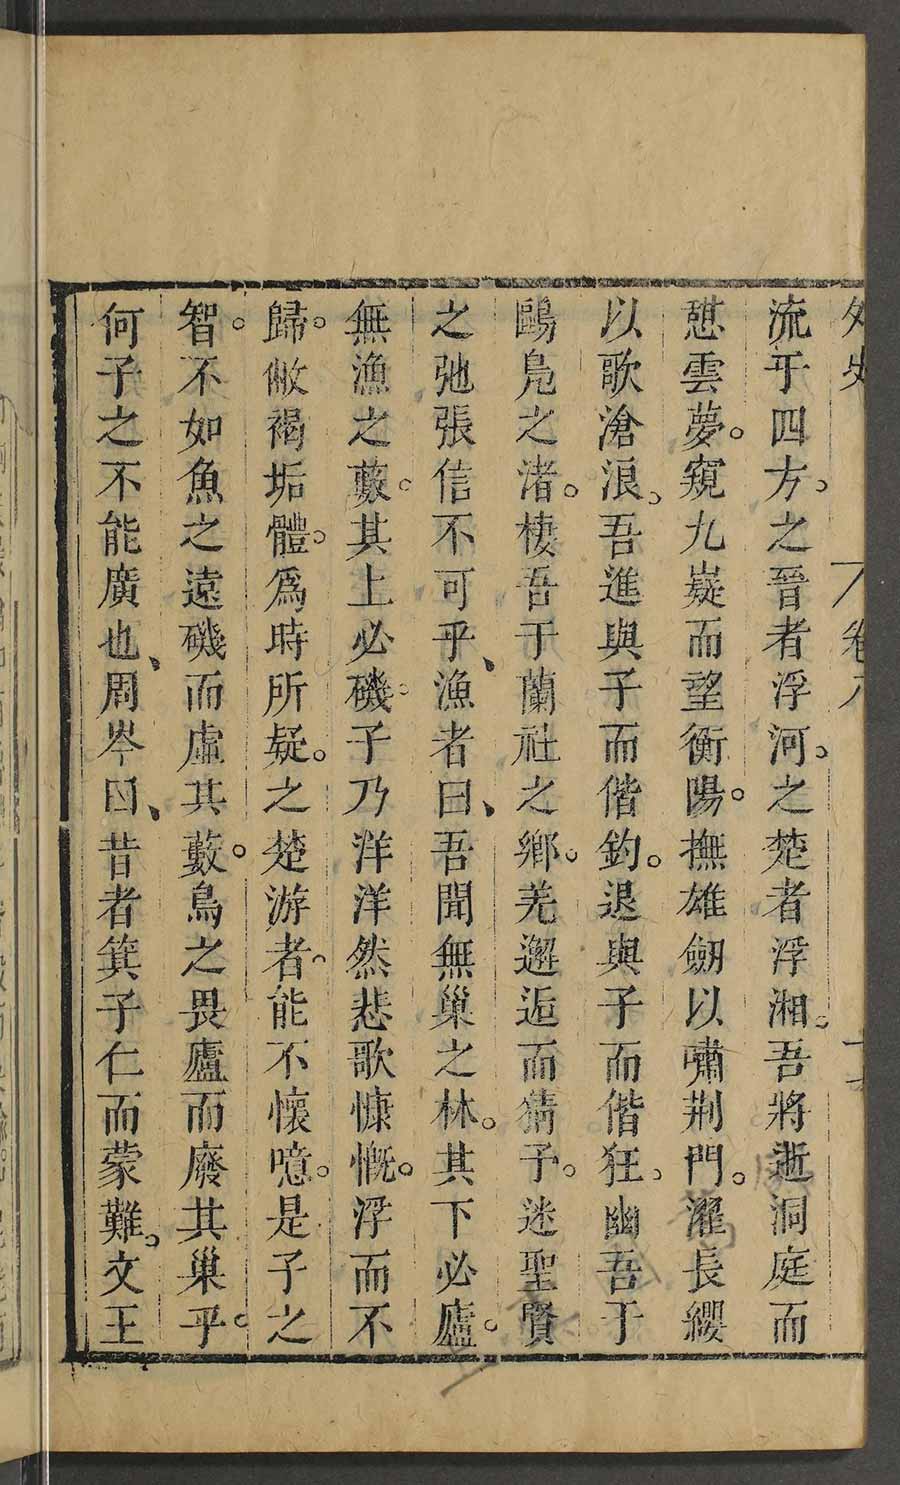 流于四方。之晉者浮河。之楚者浮湘。吾將逝洞庭而
憇雲夢。窺九嶷而望衡陽。撫雄劒以嘯荆門。濯長纓
以歌滄浪、吾進與子而偕釣。退與子而偕狂、幽吾于
鷗凫之渚。棲吾于蘭社之鄉。羌邂逅而猜予。迷聖賢
之弛張信不可乎、漁者曰、吾聞無巢之林。其下必廬。
無漁之藪。其上必磯。子乃洋洋然悲歌慷慨。浮而不
歸。敝褐垢體。爲時所疑。之楚游者。能不懷噫。是子之
智。不如魚之遠磯而虛其藪。鳥之畏廬而廢其巢乎。
何子之不能廣也、周岑曰、昔者箕子仁而蒙難。文王